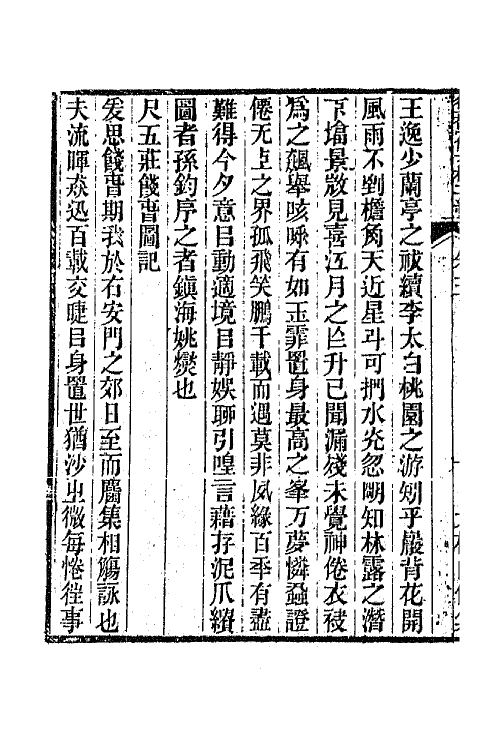 王逸少蘭亭之祓續李太白桃園之游矧乎巖背花開
風雨不到檐角天近星斗可捫水光忽明知林露之潛
下墖景澂見喜江月之亼升已聞漏殘未覺神倦衣裬
爲之飄舉咳唾有如玉霏置身最高之峯万夢憐蝨證
僊无上之界孤飛笑鵬千載而遇莫非夙緣百年有盡
難得今夕意㠯動適境㠯靜娛聊引喤言藉存泥爪繪
圖者孫鈞序之者鎭海姚燮也
尺五莊餞曹圖記
爰思餞曹期我於右安門之郊日至而麕集相觴詠也
夫流暉猋迅百載交睫㠯身置世猶沙㞢微每惓徃事